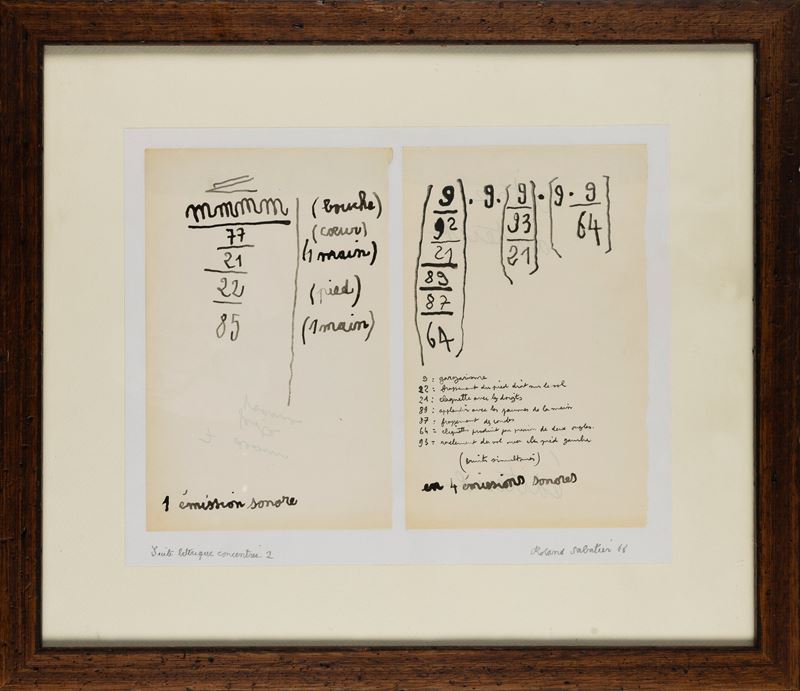 mmmm (bouche)
77 (coeur)
21 (1 main)
22 (pied)
85 (1 main)
1 émission sonore
9 . 9 . 9 . 9 . 9
92 93 64
21 21
89
87
64
9 : gargarisme
22 : frappement du pied droit sur le sol
21 : claquette avec les doigts
89 : applaudir avec les paumes de la main
87 : frappement des coudes
64 = cliquettis produit par pression de deux ongles
93 = raclement du sol avec le pied gauche
(bruits simultanés)
en 4 émissions sonores
Suite lettrique concentrée 2
Roland Sabatier 66